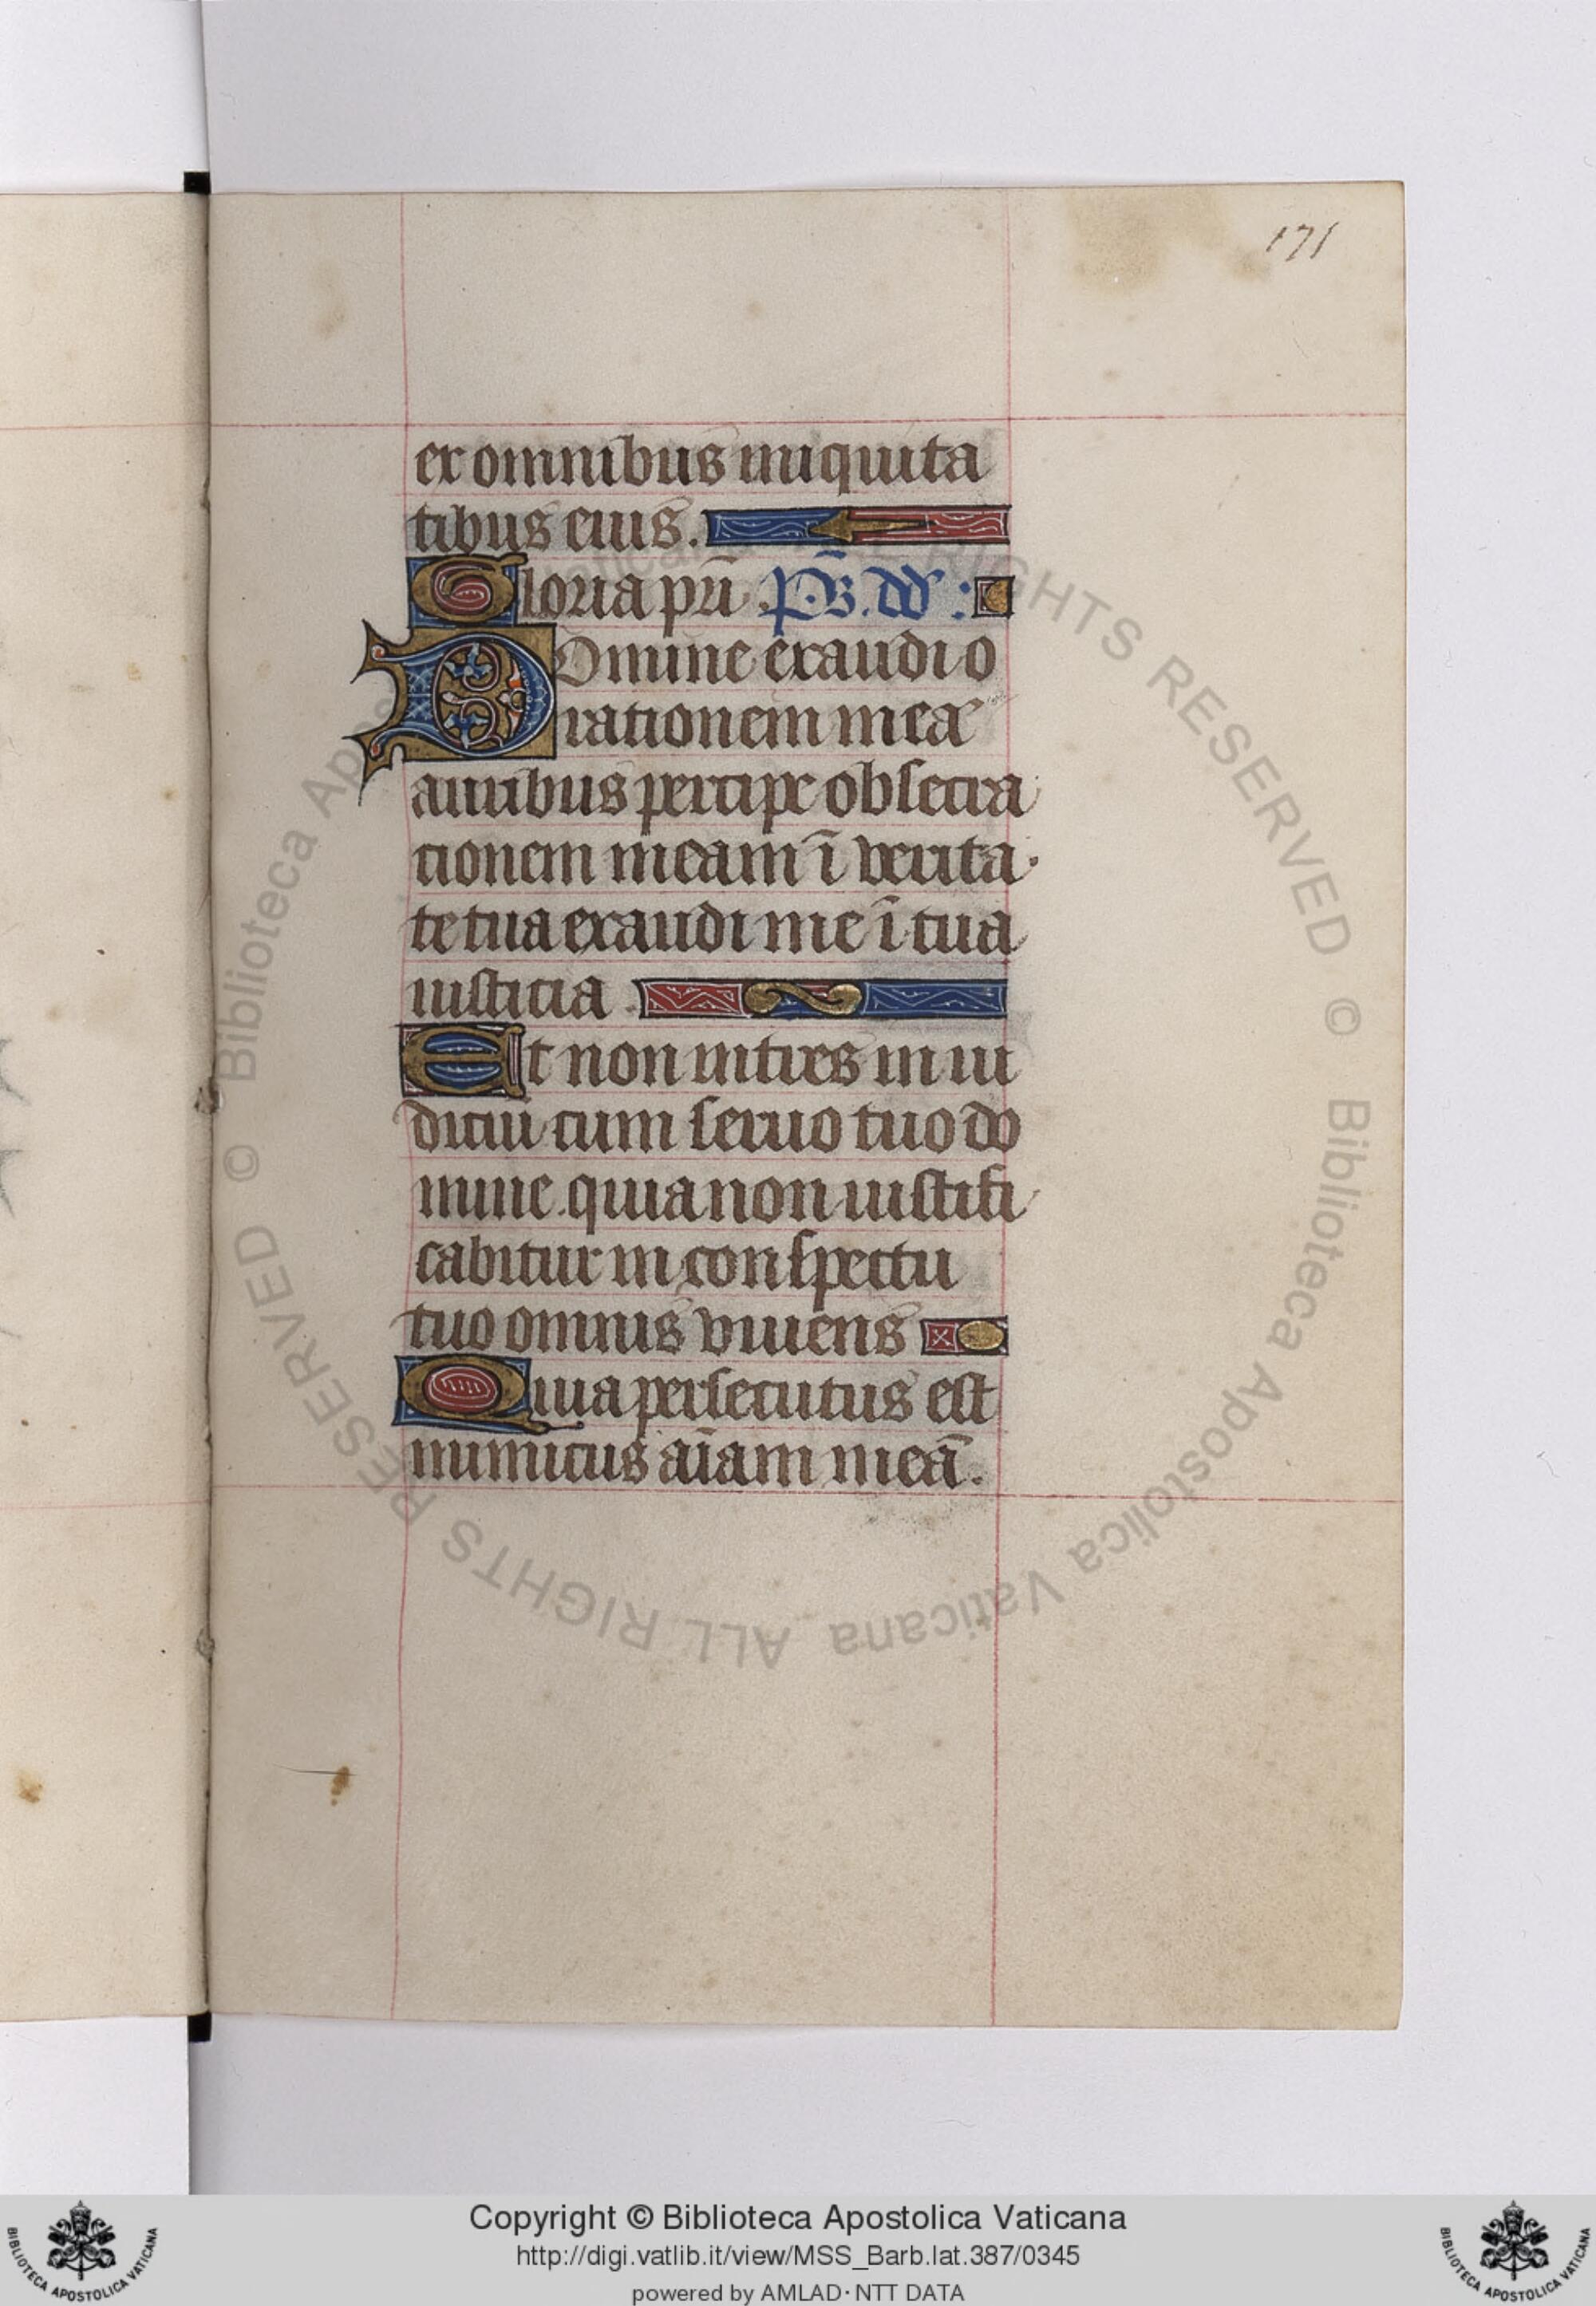 171
ex omnibus iniquita
tibus eius.
Gloria pr̄i ps̄. dd :
Domine exaudi o
rationem meā
auribus percipe obsecra
tionem meam ī verita
te tua exaudi me ī tua
iusticia
Et non intres in iu
diciū cum seruo tuo do
mine. quia non iustifi
cabitur in conspectu
tuo omnis viuens
Quia persecutus est
inimicus aīam meā.
© Biblioteca Apostolica Vaticana ALL RIGHTS RESERVED © Biblioteca Apostolica Vaticana ALL RIGHTS RESERVED
Copyright © Biblioteca Apostolica Vaticana
http://digi.vatlib.it/view/MSS_Barb.lat.387/0345
powered by AMLAD·NTT DATA
BIBLIOTECA APOSTOLICA VATICANA
BIBLIOTECA APOSTOLICA VATICANA